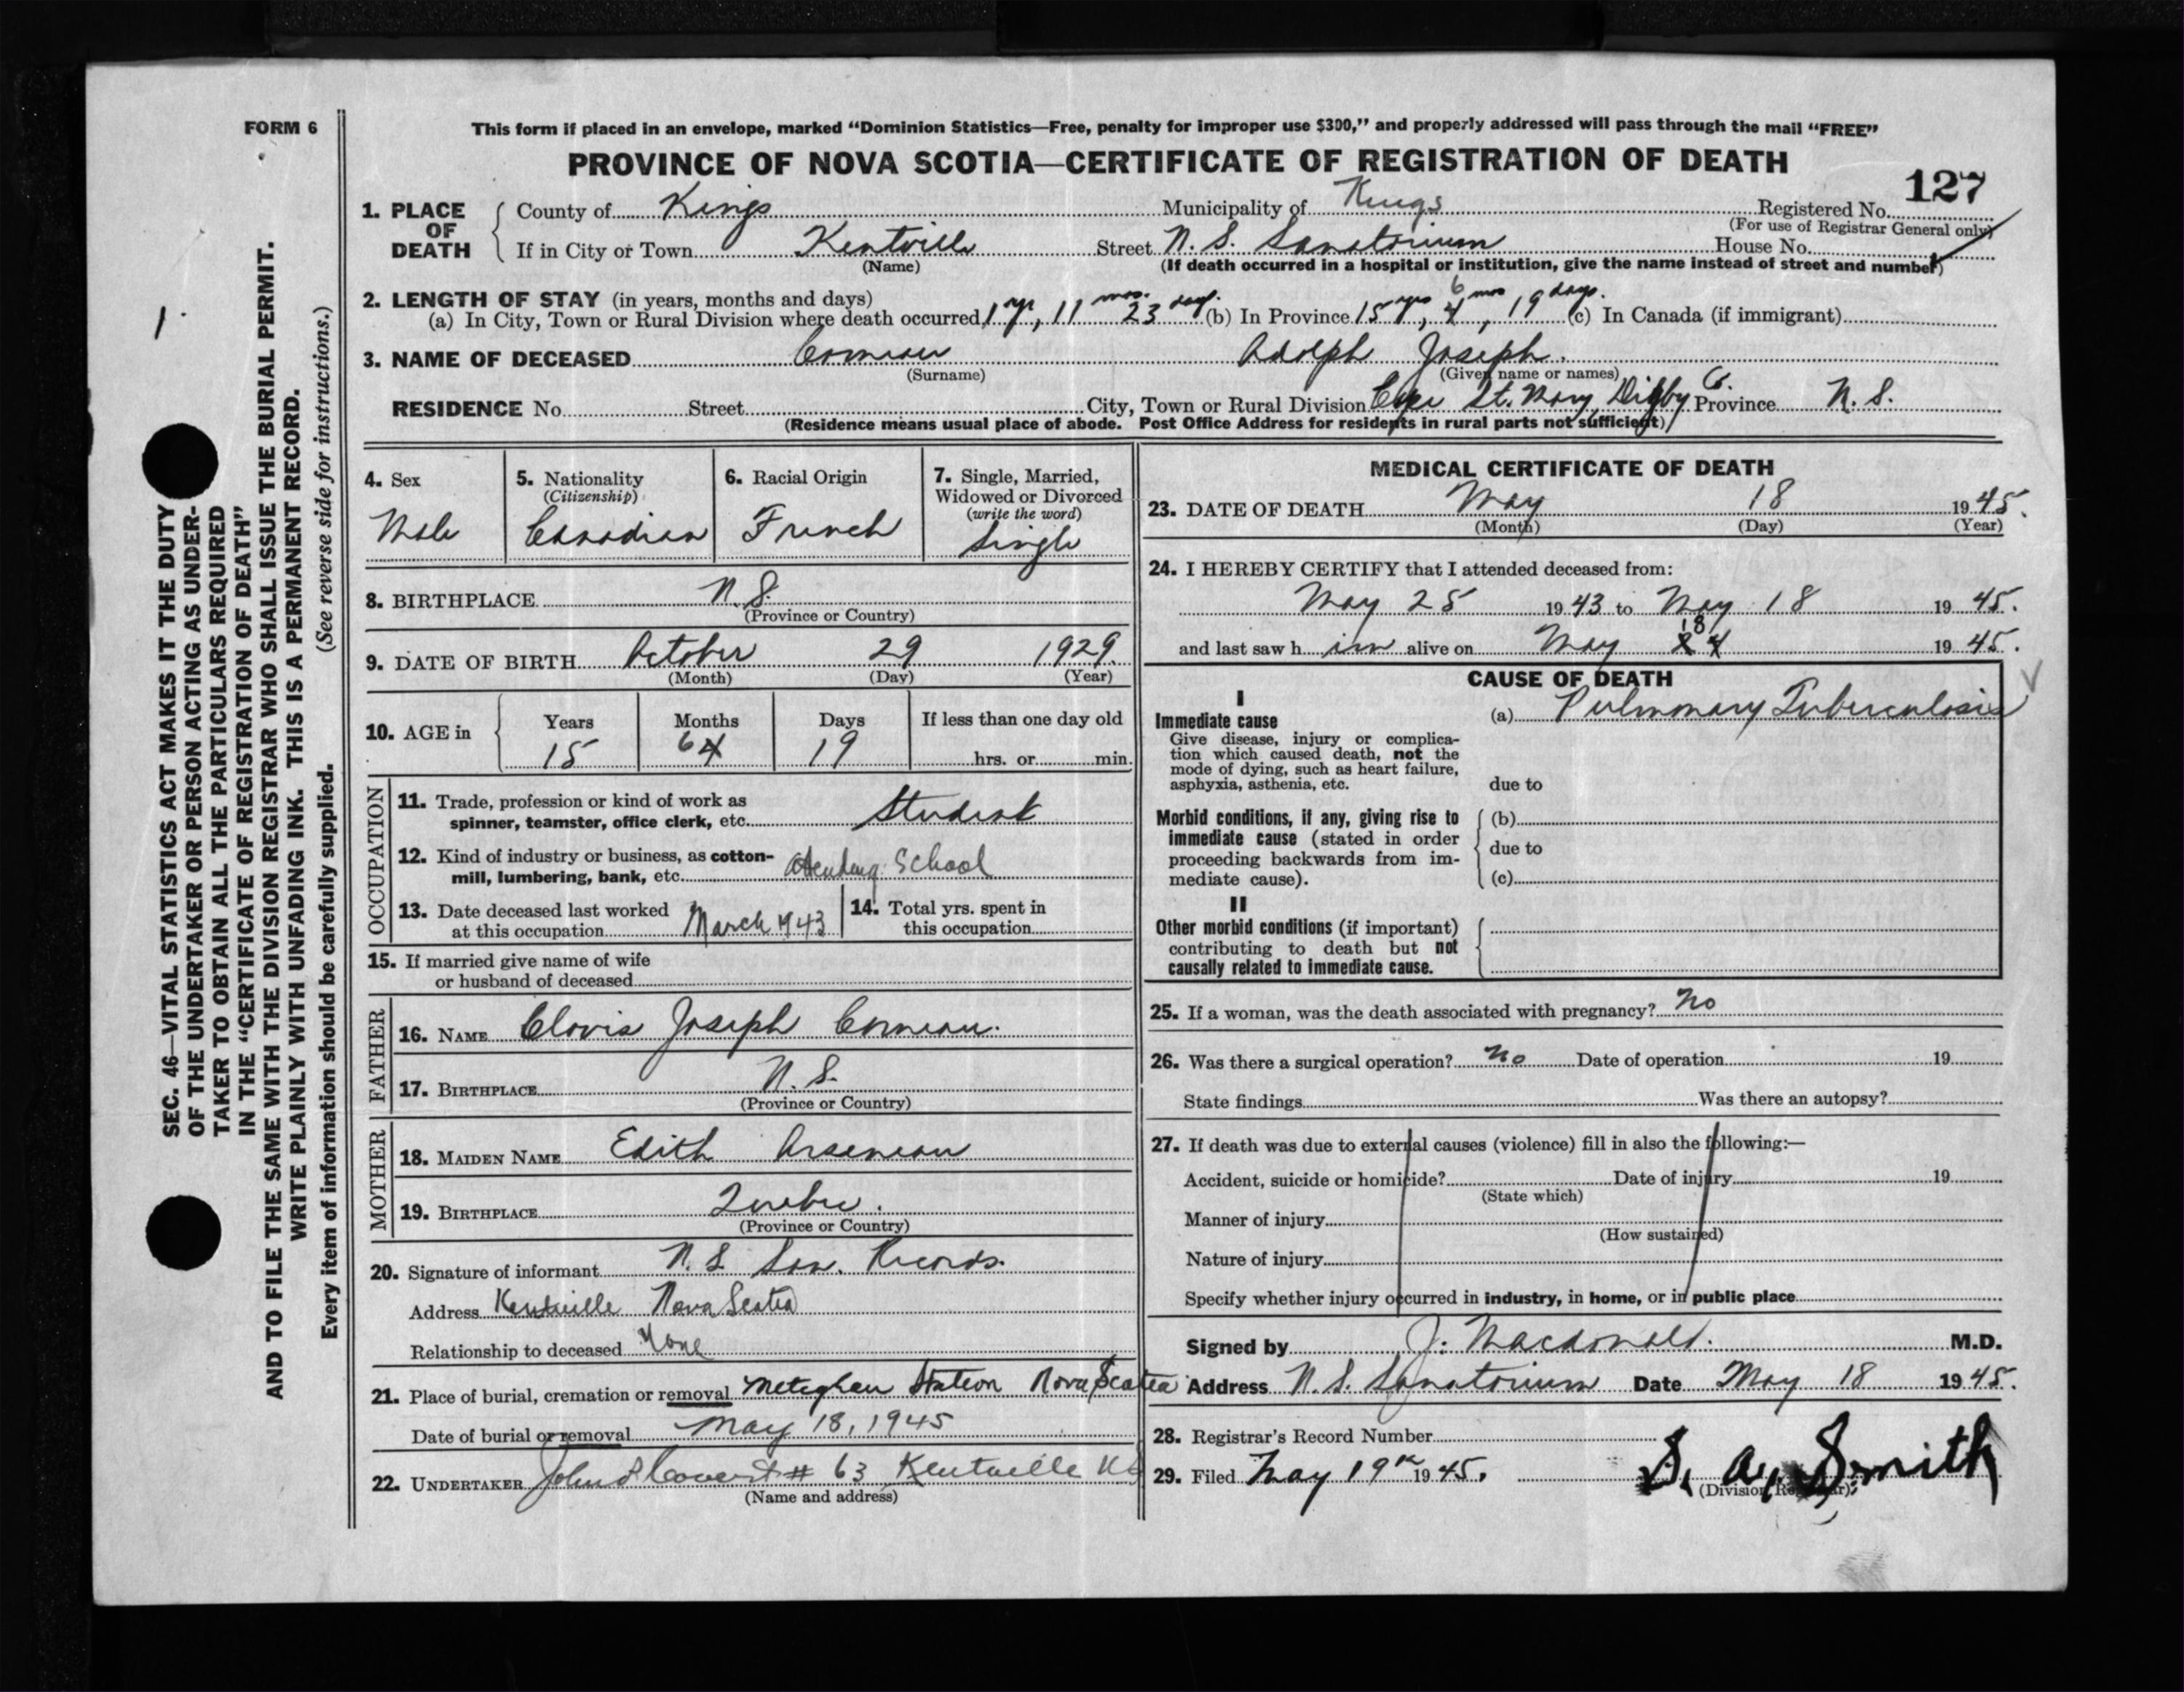 FORM 6
This form if placed in an envelope, marked “Dominion Statistics—Free, penalty for improper use $300,” and properly addressed will pass through the mail “FREE”
PROVINCE OF NOVA SCOTIA—CERTIFICATE OF REGISTRATION OF DEATH
127
1. PLACE OF DEATH
County of Kings Municipality of Kings Registered No.
(For use of Registrar General only)
If in City or Town Kentville Street N. S. Sanatorium House No.
(Name) (If death occurred in a hospital or institution, give the name instead of street and number)
2. LENGTH OF STAY (in years, months and days)
(a) In City, Town or Rural Division where death occurred 1 yr, 11 mos. 23 days. (b) In Province 15 yrs, 4 6 mos, 19 days. (c) In Canada (if immigrant)
3. NAME OF DECEASED Comeau Adolph Joseph.
(Surname) (Given name or names)
RESIDENCE No. Street City, Town or Rural Division Cape St. Mary, Digby Co. Province N. S.
(Residence means usual place of abode. Post Office Address for residents in rural parts not sufficient)
4. Sex
Male
5. Nationality
(Citizenship)
Canadian
6. Racial Origin
French
7. Single, Married,
Widowed or Divorced
(write the word)
Single
8. BIRTHPLACE N. S.
(Province or Country)
9. DATE OF BIRTH October 29 1929.
(Month) (Day) (Year)
10. AGE in
Years Months Days If less than one day old
15 6 4 19 hrs. or min.
OCCUPATION
11. Trade, profession or kind of work as
spinner, teamster, office clerk, etc. Student
12. Kind of industry or business, as cotton-
mill, lumbering, bank, etc. Attending School
13. Date deceased last worked
at this occupation March 1943
14. Total yrs. spent in
this occupation
15. If married give name of wife
or husband of deceased
FATHER
16. NAME Clovis Joseph Comeau.
17. BIRTHPLACE N. S.
(Province or Country)
MOTHER
18. MAIDEN NAME Edith Arseneau
19. BIRTHPLACE Quebec.
(Province or Country)
20. Signature of informant N. S. San. Records.
Address Kentville Nova Scotia
Relationship to deceased None
21. Place of burial, cremation or removal Meteghan Station Nova Scotia
Date of burial or removal May 18, 1945
22. UNDERTAKER John # 63 Kentville NS
(Name and address)
MEDICAL CERTIFICATE OF DEATH
23. DATE OF DEATH May 18 1945.
(Month) (Day) (Year)
24. I HEREBY CERTIFY that I attended deceased from:
May 25 1943 to May 18 1945.
and last saw him alive on May 18 1945.
CAUSE OF DEATH
I
Immediate cause (a) Pulmonary Tuberculosis
Give disease, injury or complica-
tion which caused death, not the
mode of dying, such as heart failure,
asphyxia, asthenia, etc. due to
Morbid conditions, if any, giving rise to (b)
immediate cause (stated in order
proceeding backwards from im- due to
mediate cause). (c)
II
Other morbid conditions (if important)
contributing to death but not
causally related to immediate cause.
25. If a woman, was the death associated with pregnancy? No
26. Was there a surgical operation? No Date of operation 19
State findings Was there an autopsy?
27. If death was due to external causes (violence) fill in also the following:—
Accident, suicide or homicide? Date of injury 19
(State which)
Manner of injury
(How sustained)
Nature of injury
Specify whether injury occurred in industry, in home, or in public place
Signed by J. Macdonald. M.D.
Address N. S. Sanatorium Date May 18 1945.
28. Registrar’s Record Number
29. Filed May 19th 1945. S. A. Smith
(Division Registrar)
SEC. 46—VITAL STATISTICS ACT MAKES IT THE DUTY
OF THE UNDERTAKER OR PERSON ACTING AS UNDER-
TAKER TO OBTAIN ALL THE PARTICULARS REQUIRED
IN THE “CERTIFICATE OF REGISTRATION OF DEATH”
AND TO FILE THE SAME WITH THE DIVISION REGISTRAR WHO SHALL ISSUE THE BURIAL PERMIT.
WRITE PLAINLY WITH UNFADING INK. THIS IS A PERMANENT RECORD.
Every item of information should be carefully supplied. (See reverse side for instructions.)
1.